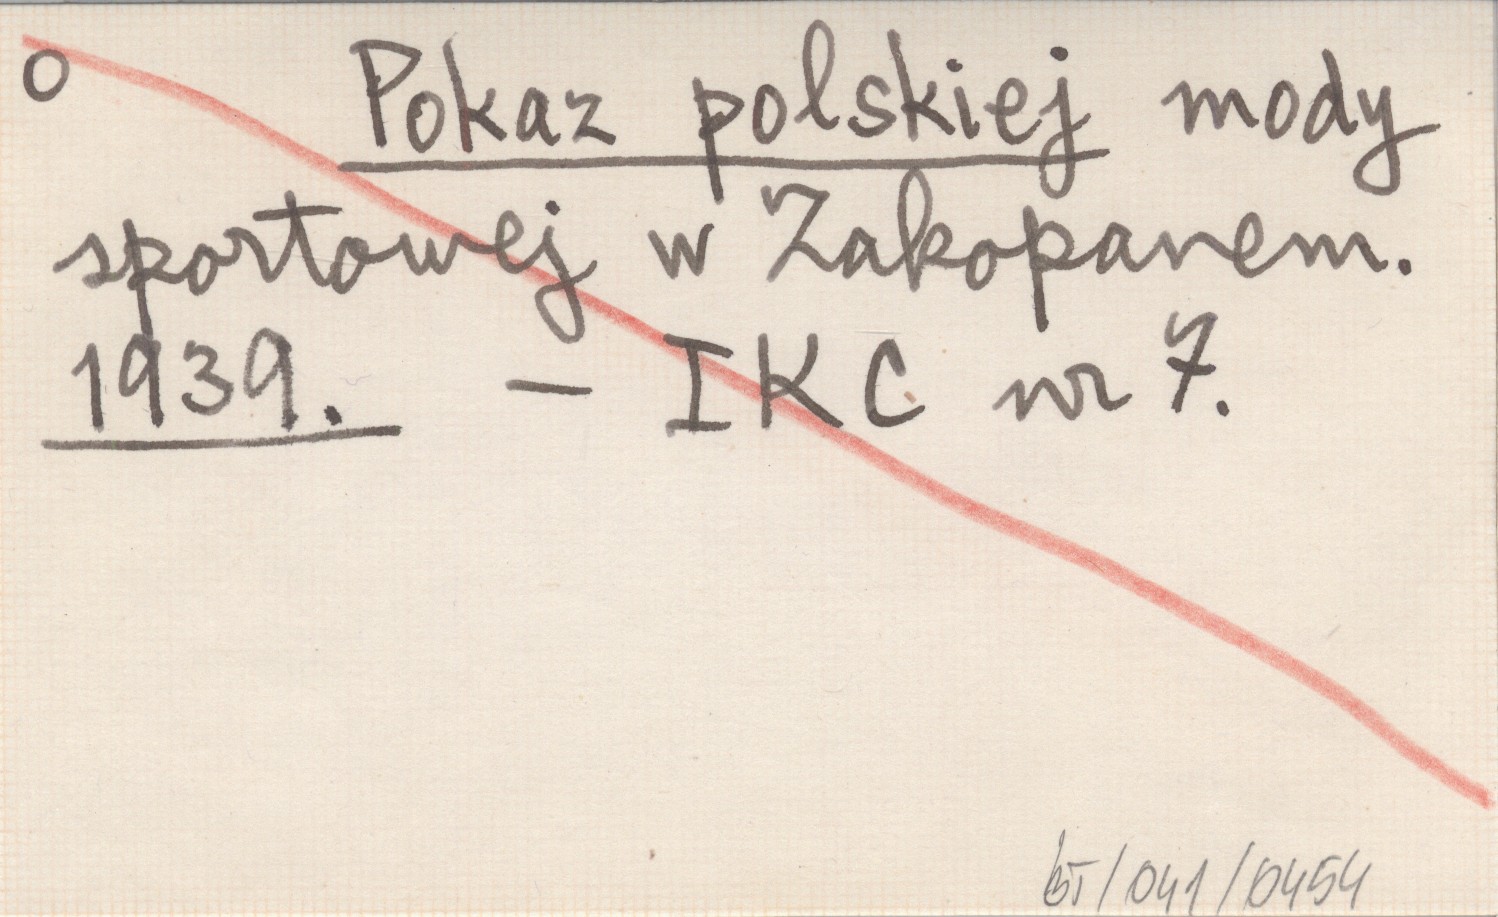 O Pokaz polskiej mody
sportowej w Zakopanem.
1939. – IKC nr 7.
BT/041/0454